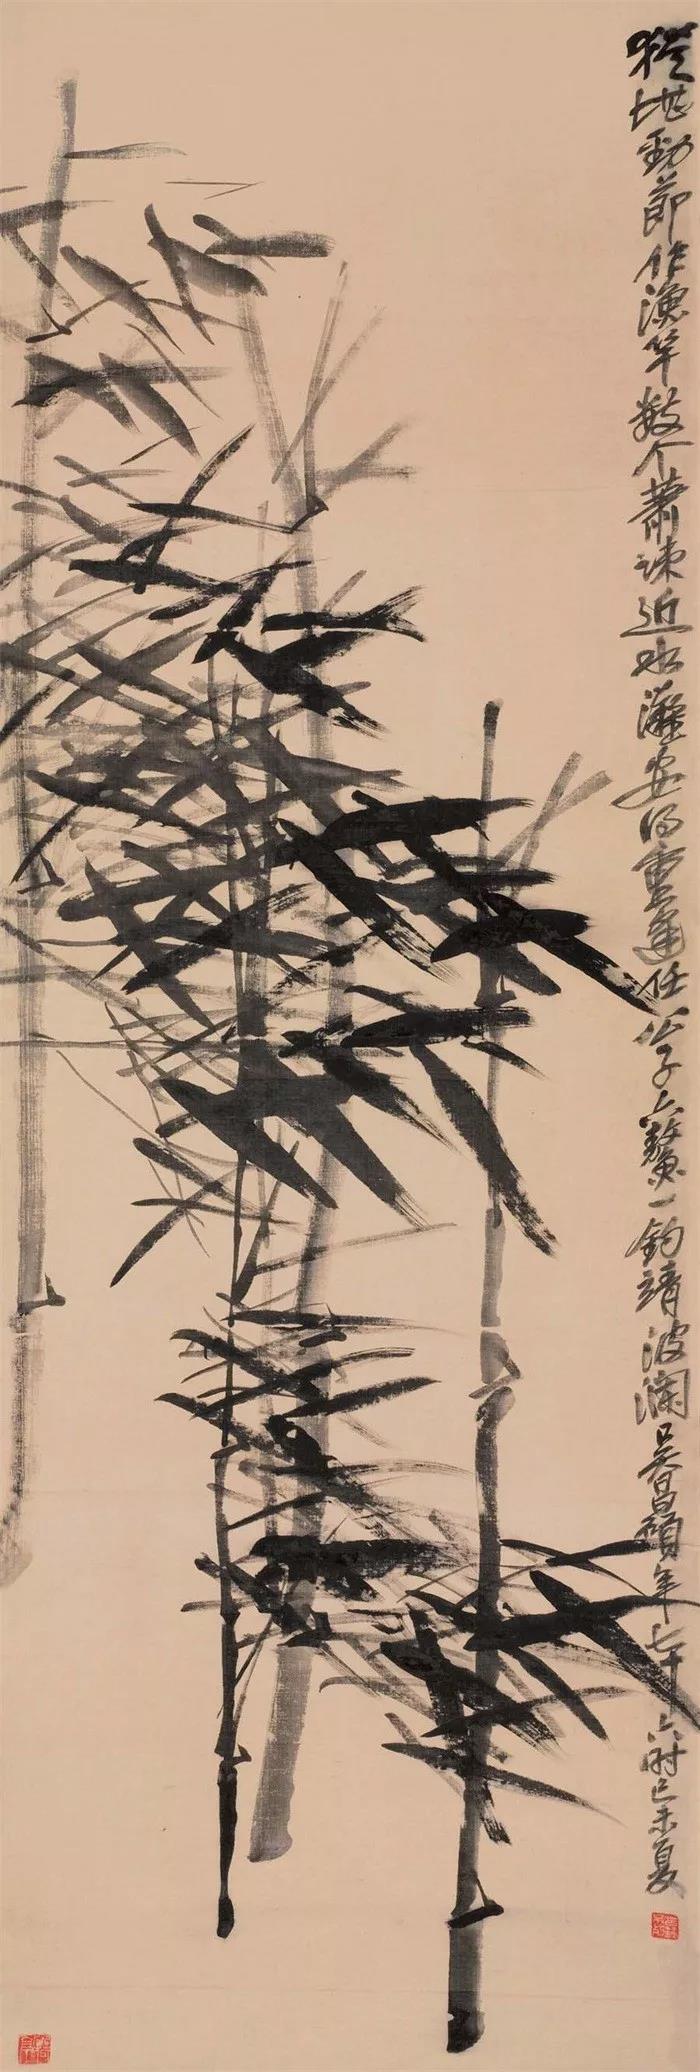 地勁節作漁竿數个蕭疎近水灘安得重逢任公子六鰲一釣靖波瀾吳昌碩年七十六时己未夏